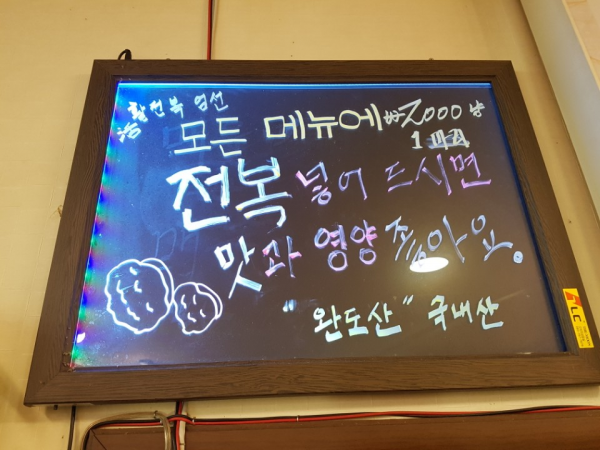 活 활전복 엄선
모든 메뉴에 ₩2000냥
1마리
전복 넣어 드시면
맛과 영양 좋아요.
"완도산" 국내산
LC